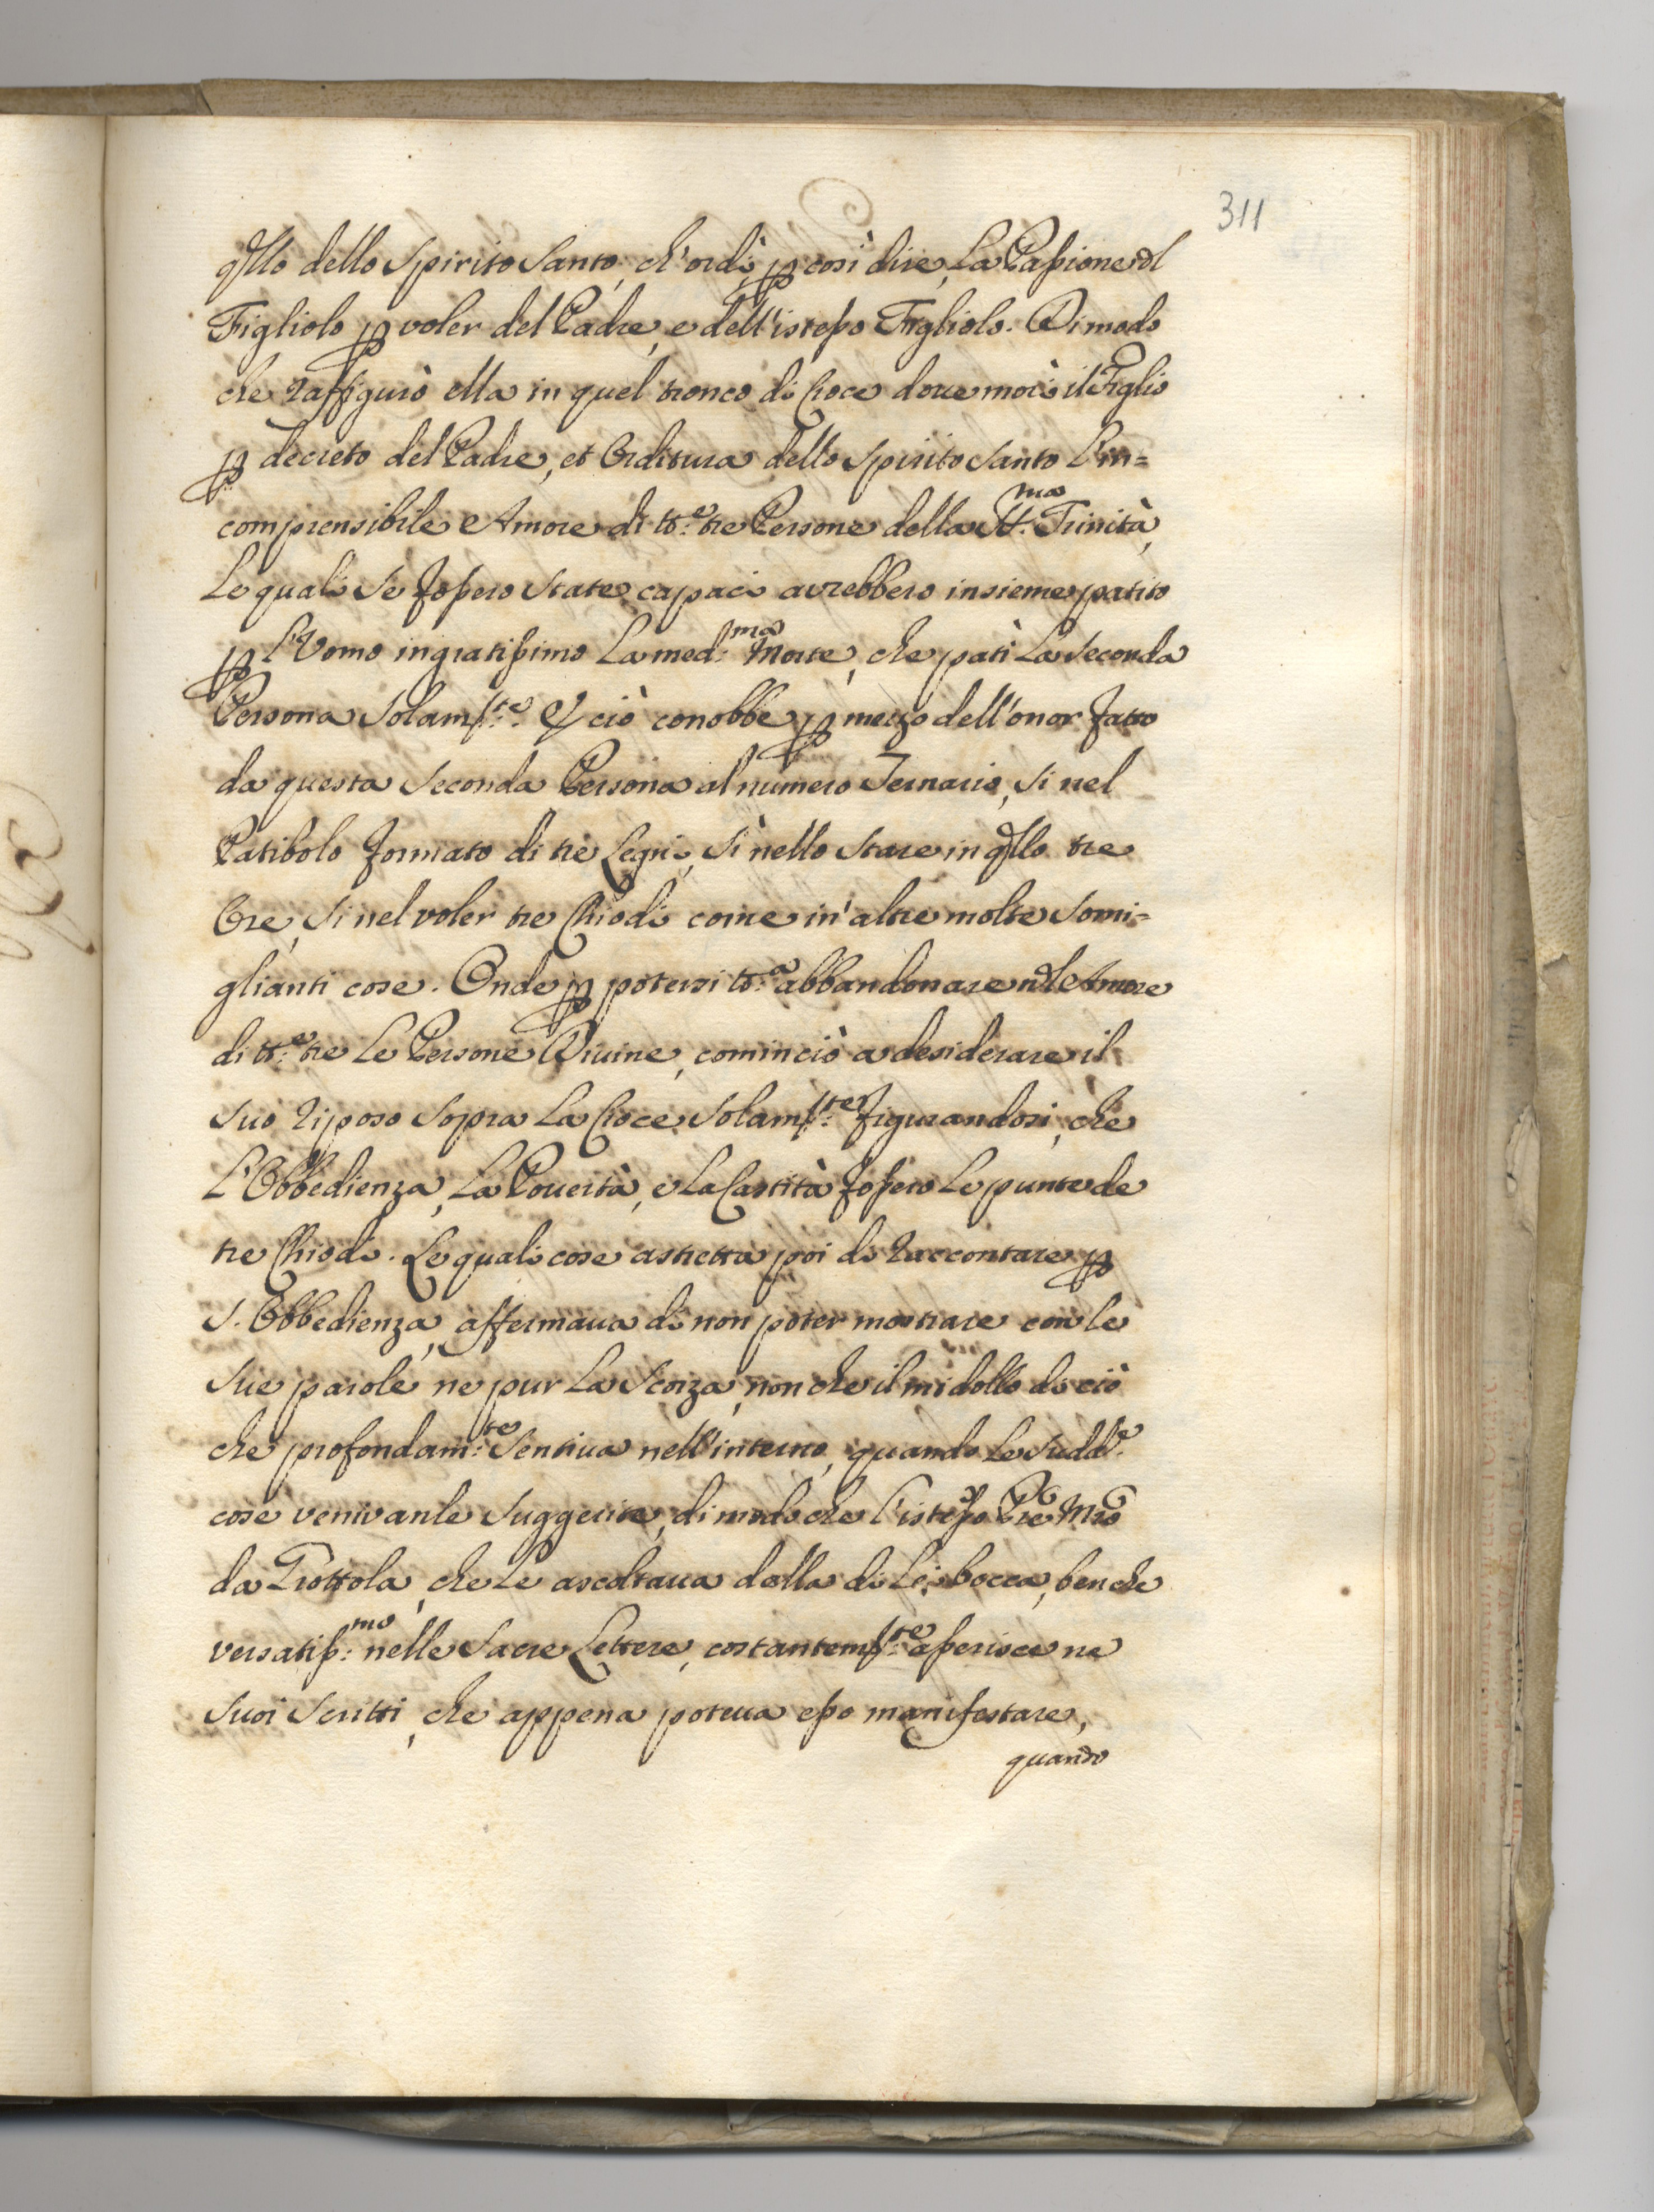 311
qllo dello Spirito Santo, ch'ordì, p così dire, La Passione dl
Figliolo p voler del Padre, e dell'istesso Figliolo. Di modo
che raffigurò ella in quel tronco di Croce dove morì il Figlio
p decreto del Padre, et Orditura dello Spirito Santo L'in=
comprensibile Amore di tt:e tre Persone della SS:ma Trinità,
Le quali se fossero state capaci avrebbero insieme patito
p l'Uomo ingratissimo La med:ma Morte, che patì La Seconda
Persona Solam:te. E ciò conobbe p mezzo dell'onor fatto
da questa Seconda Persona al numero Ternario, sì nel
Patibolo formato di tre Legni, sì nello stare in qllo tre
Ore, sì nel voler tre Chiodi come in'altre molte somi=
glianti cose. Onde p potersi tt:a abbandonare nell Amore
di tt:e tre Le Persone Divine, cominciò a desiderare il
suo riposo sopra La Croce Solam:te figurandosi, che
L'Obbedienza, La Povertà, e La Castità fossero Le punte de
tre Chiodi. Le quali cose astretta poi di raccontare p
S. Obbedienza, affermava di non poter mostrare con le
sue parole ne pur La Scorza, non che il midollo di ciò
che profondam:te sentiva nell'interno, quando Le sudd:e
cose venivanle suggerite, di modo che l'istesso Pre Mro
da Trottola, che Le ascoltava dalla di Lei bocca, benche
versatiss:mo nelle Sacre Lettere, costantem:te asserisce ne
suoi Scritti, che appena poteva esso manifestare,
quando